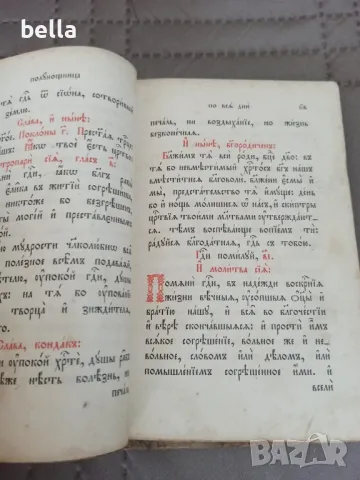 bella
полунощница
тѧ̀ гдⷭ҇ь ѿ сїѡ́на, сотвори́вый
землю.
Сла́ва, и҆ ны́нѣ:
Покло́ны г҃.
тропари̑ сїѧ̑, гла́съ
гдⷭ҇и, ꙗ҆́кѡ бл҃гъ
є҆ли́ка въ житїѝ согрѣши́ша:
никто́же бо безгрѣ́шенъ
ты̀ моги́й и҆ преста́вленнымъ
мꙋ́дрости человѣколю́бнѡ
поле́зное всѣ̑мъ подава́ѧй
ᲂу҆поко́й гдⷭ҇и, дꙋ́шы
на тѧ́ бо ᲂу҆пова́нїе
творца̀ и҆ зижди́телѧ
Сла́ва, конда́къ:
ᲂу҆поко́й хрⷭ҇тѐ, дꙋ́шы ра̑бъ
нѣ́сть болѣ́знь, ни
печа́ль,
по всѧ̑ дни̑
печа́ль, ни воздыха́нїе, но жи́знь
безконе́чнаѧ.
И҆ ны́нѣ, бг҃оро́диченъ:
Бл҃жи́мъ тѧ̀ всѝ ро́ди, бц҃е дв҃о: въ
тѧ́ бо невмѣсти́мый хрⷭ҇то́съ бг҃ъ на́шъ
вмѣсти́тисѧ бл҃говолѝ. бл҃же́ни є҆смы̀ и҆
мы̀, предста́тельство тѧ̀ и҆мꙋ́ще: де́нь
бо и҆ но́щь мо́лишисѧ ѡ҆ на́съ, и҆ ски́птры
црⷭ҇твїѧ твои́ми мл҃твами ᲂу҆твержда́ют-
сѧ. тѣ́мъ воспѣва́юще вопїе́мъ тѝ:
ра́дꙋйсѧ бл҃года́тнаѧ, гдⷭ҇ь съ тобо́ю.
Гдⷭ҇и поми́лꙋй, в҃і.
И҆ моли́тва сїѧ̀:
Помѧнѝ гдⷭ҇и, въ наде́жди воскрⷭ҇нїѧ
жи́зни вѣ́чныѧ, ᲂу҆со́пшыѧ ѻ҆тцы̀ и҆
бра́тїю на́шꙋ, и҆ всѧ̑ во бл҃гоче́стїи и҆
вѣ́рѣ сконча́вшыѧсѧ: и҆ простѝ и҆̀мъ
всѧ́кое согрѣше́нїе, во́льное же и҆ не-
во́льное, сло́вомъ и҆лѝ дѣ́ломъ, и҆лѝ
помышле́нїемъ согрѣше́нное и҆́ми. и҆
вселѝ
BAZAR
bg